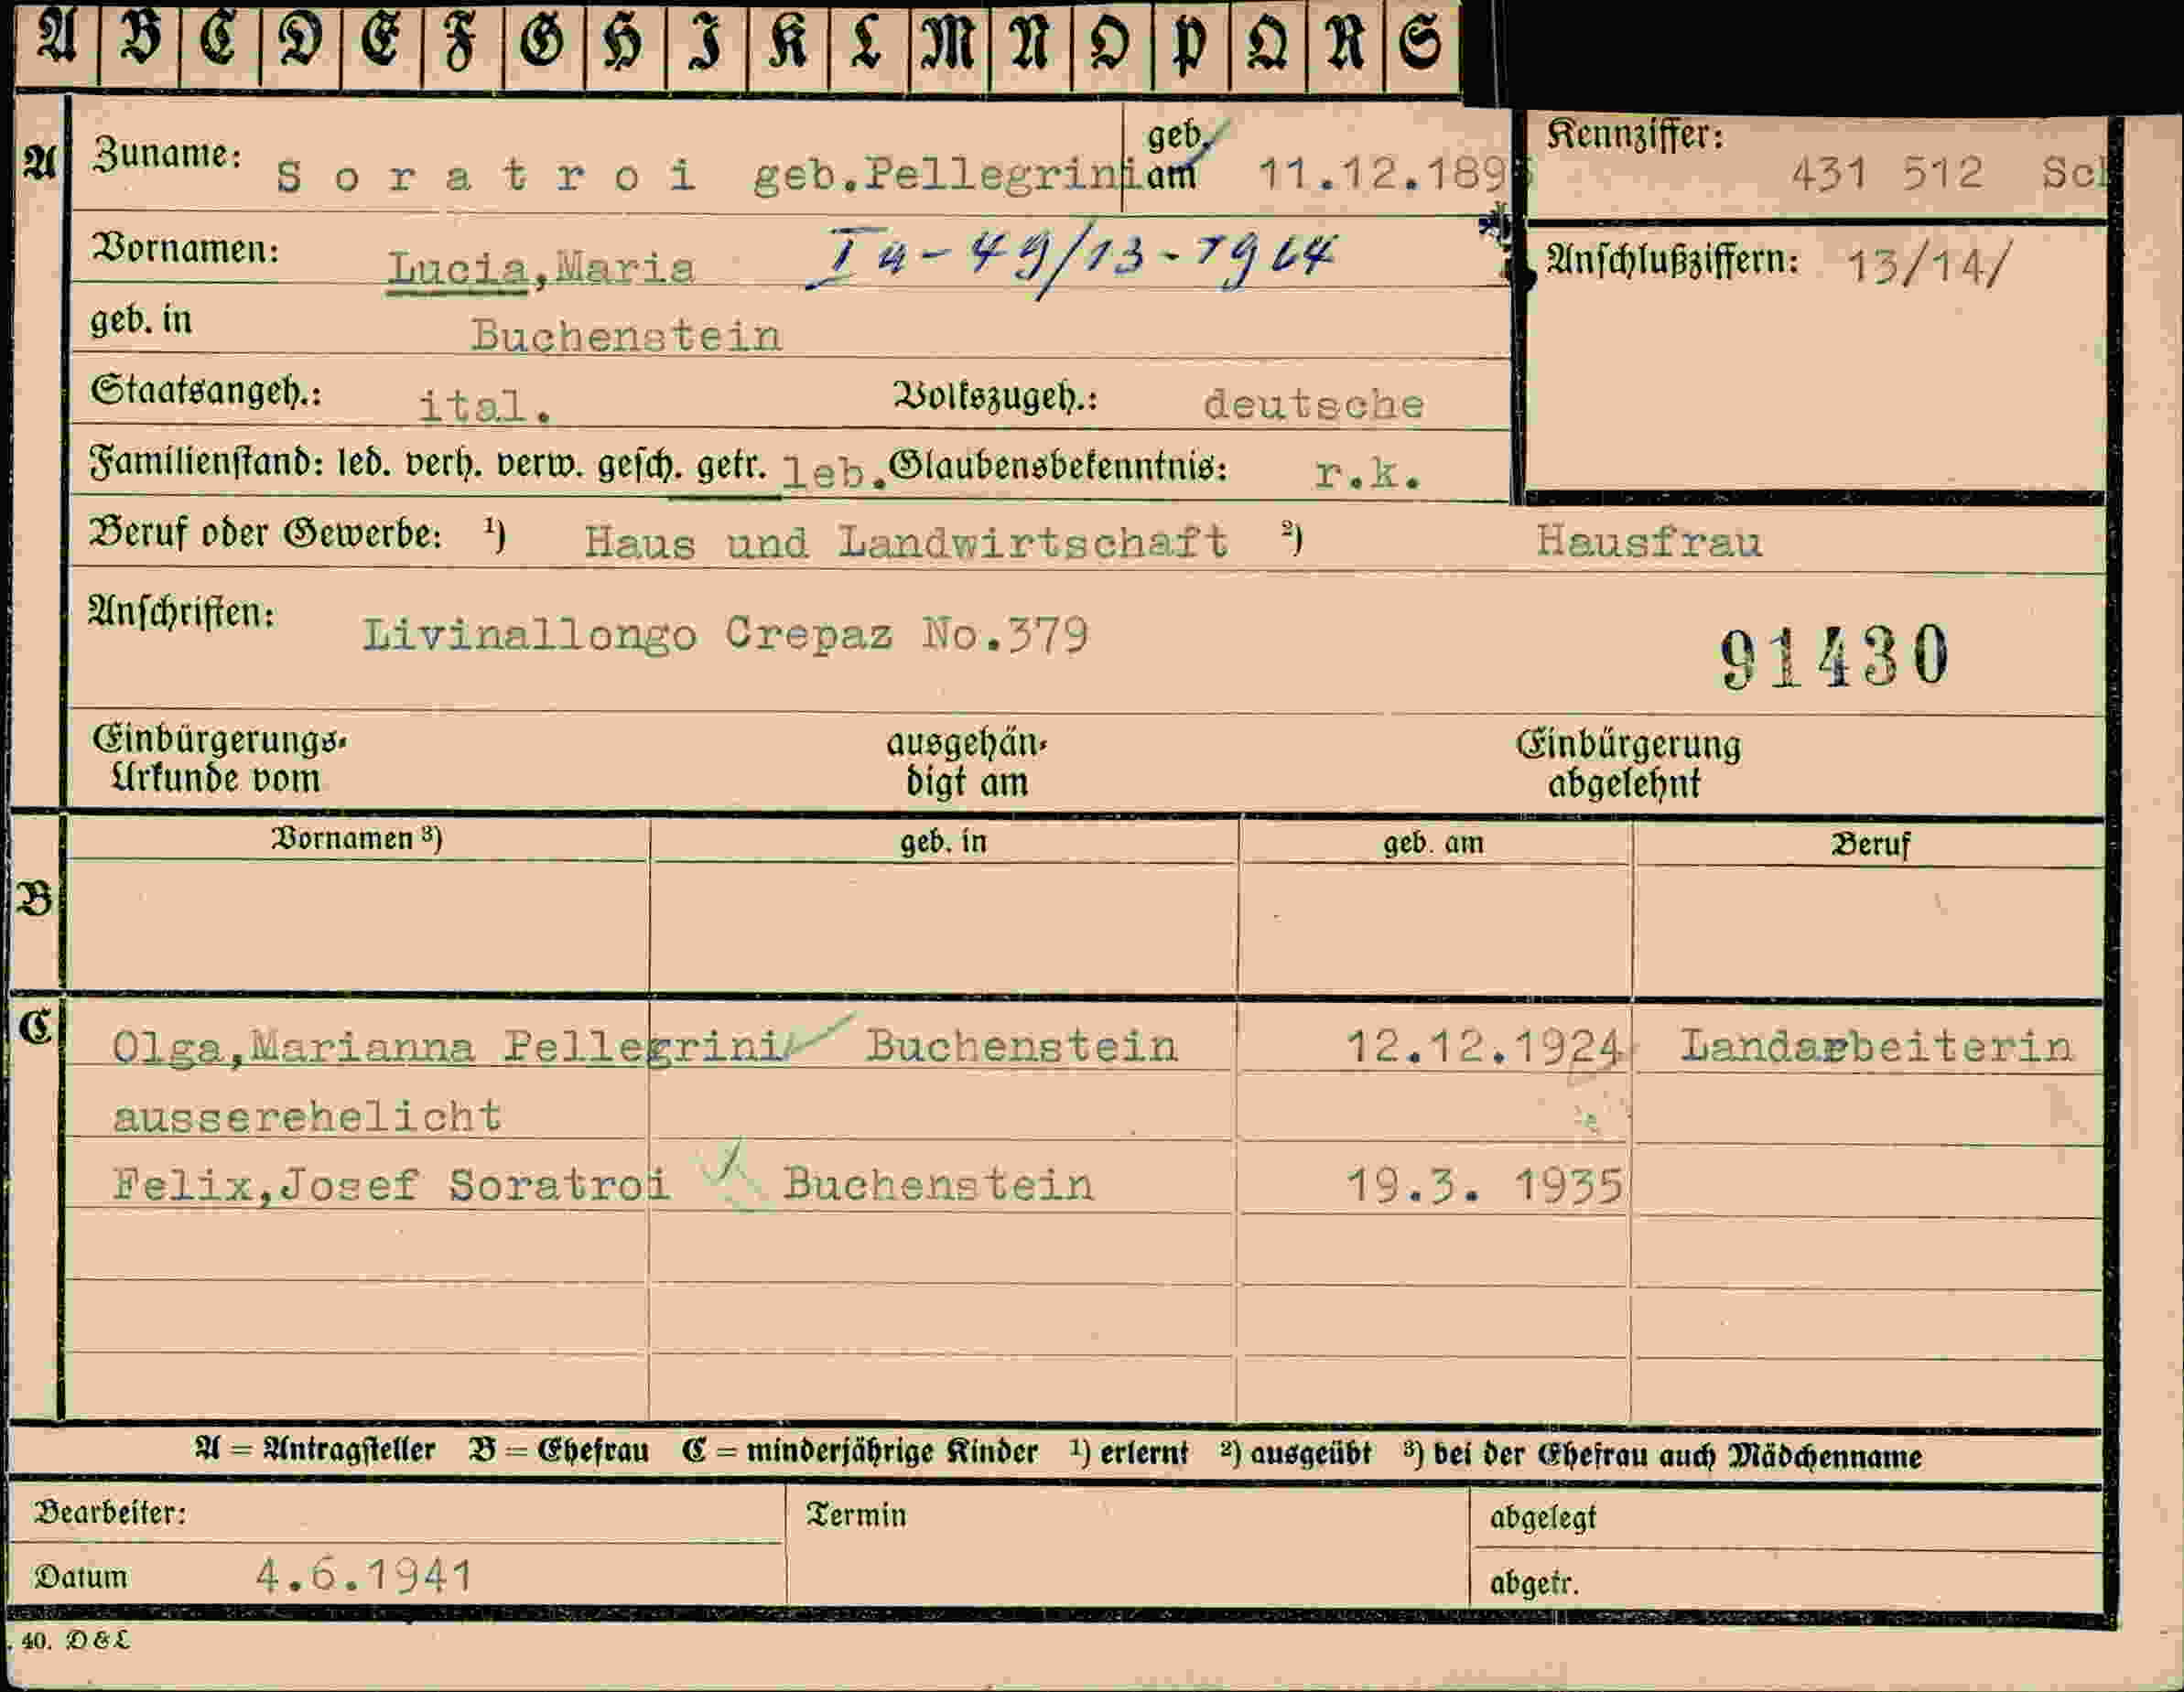 A B C D E F G H I K L M N O P Q R S
A
Zuname: Soratroi geb.Pellegrini geb. am 11.12.1895
Kennziffer: 431 512 Sch
Vornamen: Lucia,Maria Ia-49/13-1964
Anschlußziffern: 13/14/
geb. in Buchenstein
Staatsangeh.: ital. Volkszugeh.: deutsche
Familienstand: led. verh. verw. gesch. getr. leb. Glaubensbekenntnis: r.k.
Beruf oder Gewerbe: 1) Haus und Landwirtschaft 2) Hausfrau
Anschriften: Livinallongo Crepaz No.379
91430
Einbürgerungs-Urkunde vom ausgehändigt am Einbürgerung abgelehnt
Vornamen 3) geb. in geb. am Beruf
B
C
Olga,Marianna Pellegrini Buchenstein 12.12.1924 Landarbeiterin
ausserehelicht
Felix,Josef Soratroi Buchenstein 19.3. 1935
A = Antragsteller B = Ehefrau C = minderjährige Kinder 1) erlernt 2) ausgeübt 3) bei der Ehefrau auch Mädchenname
Bearbeiter: Termin abgelegt
Datum 4.6.1941 abgetr.
40. D&L